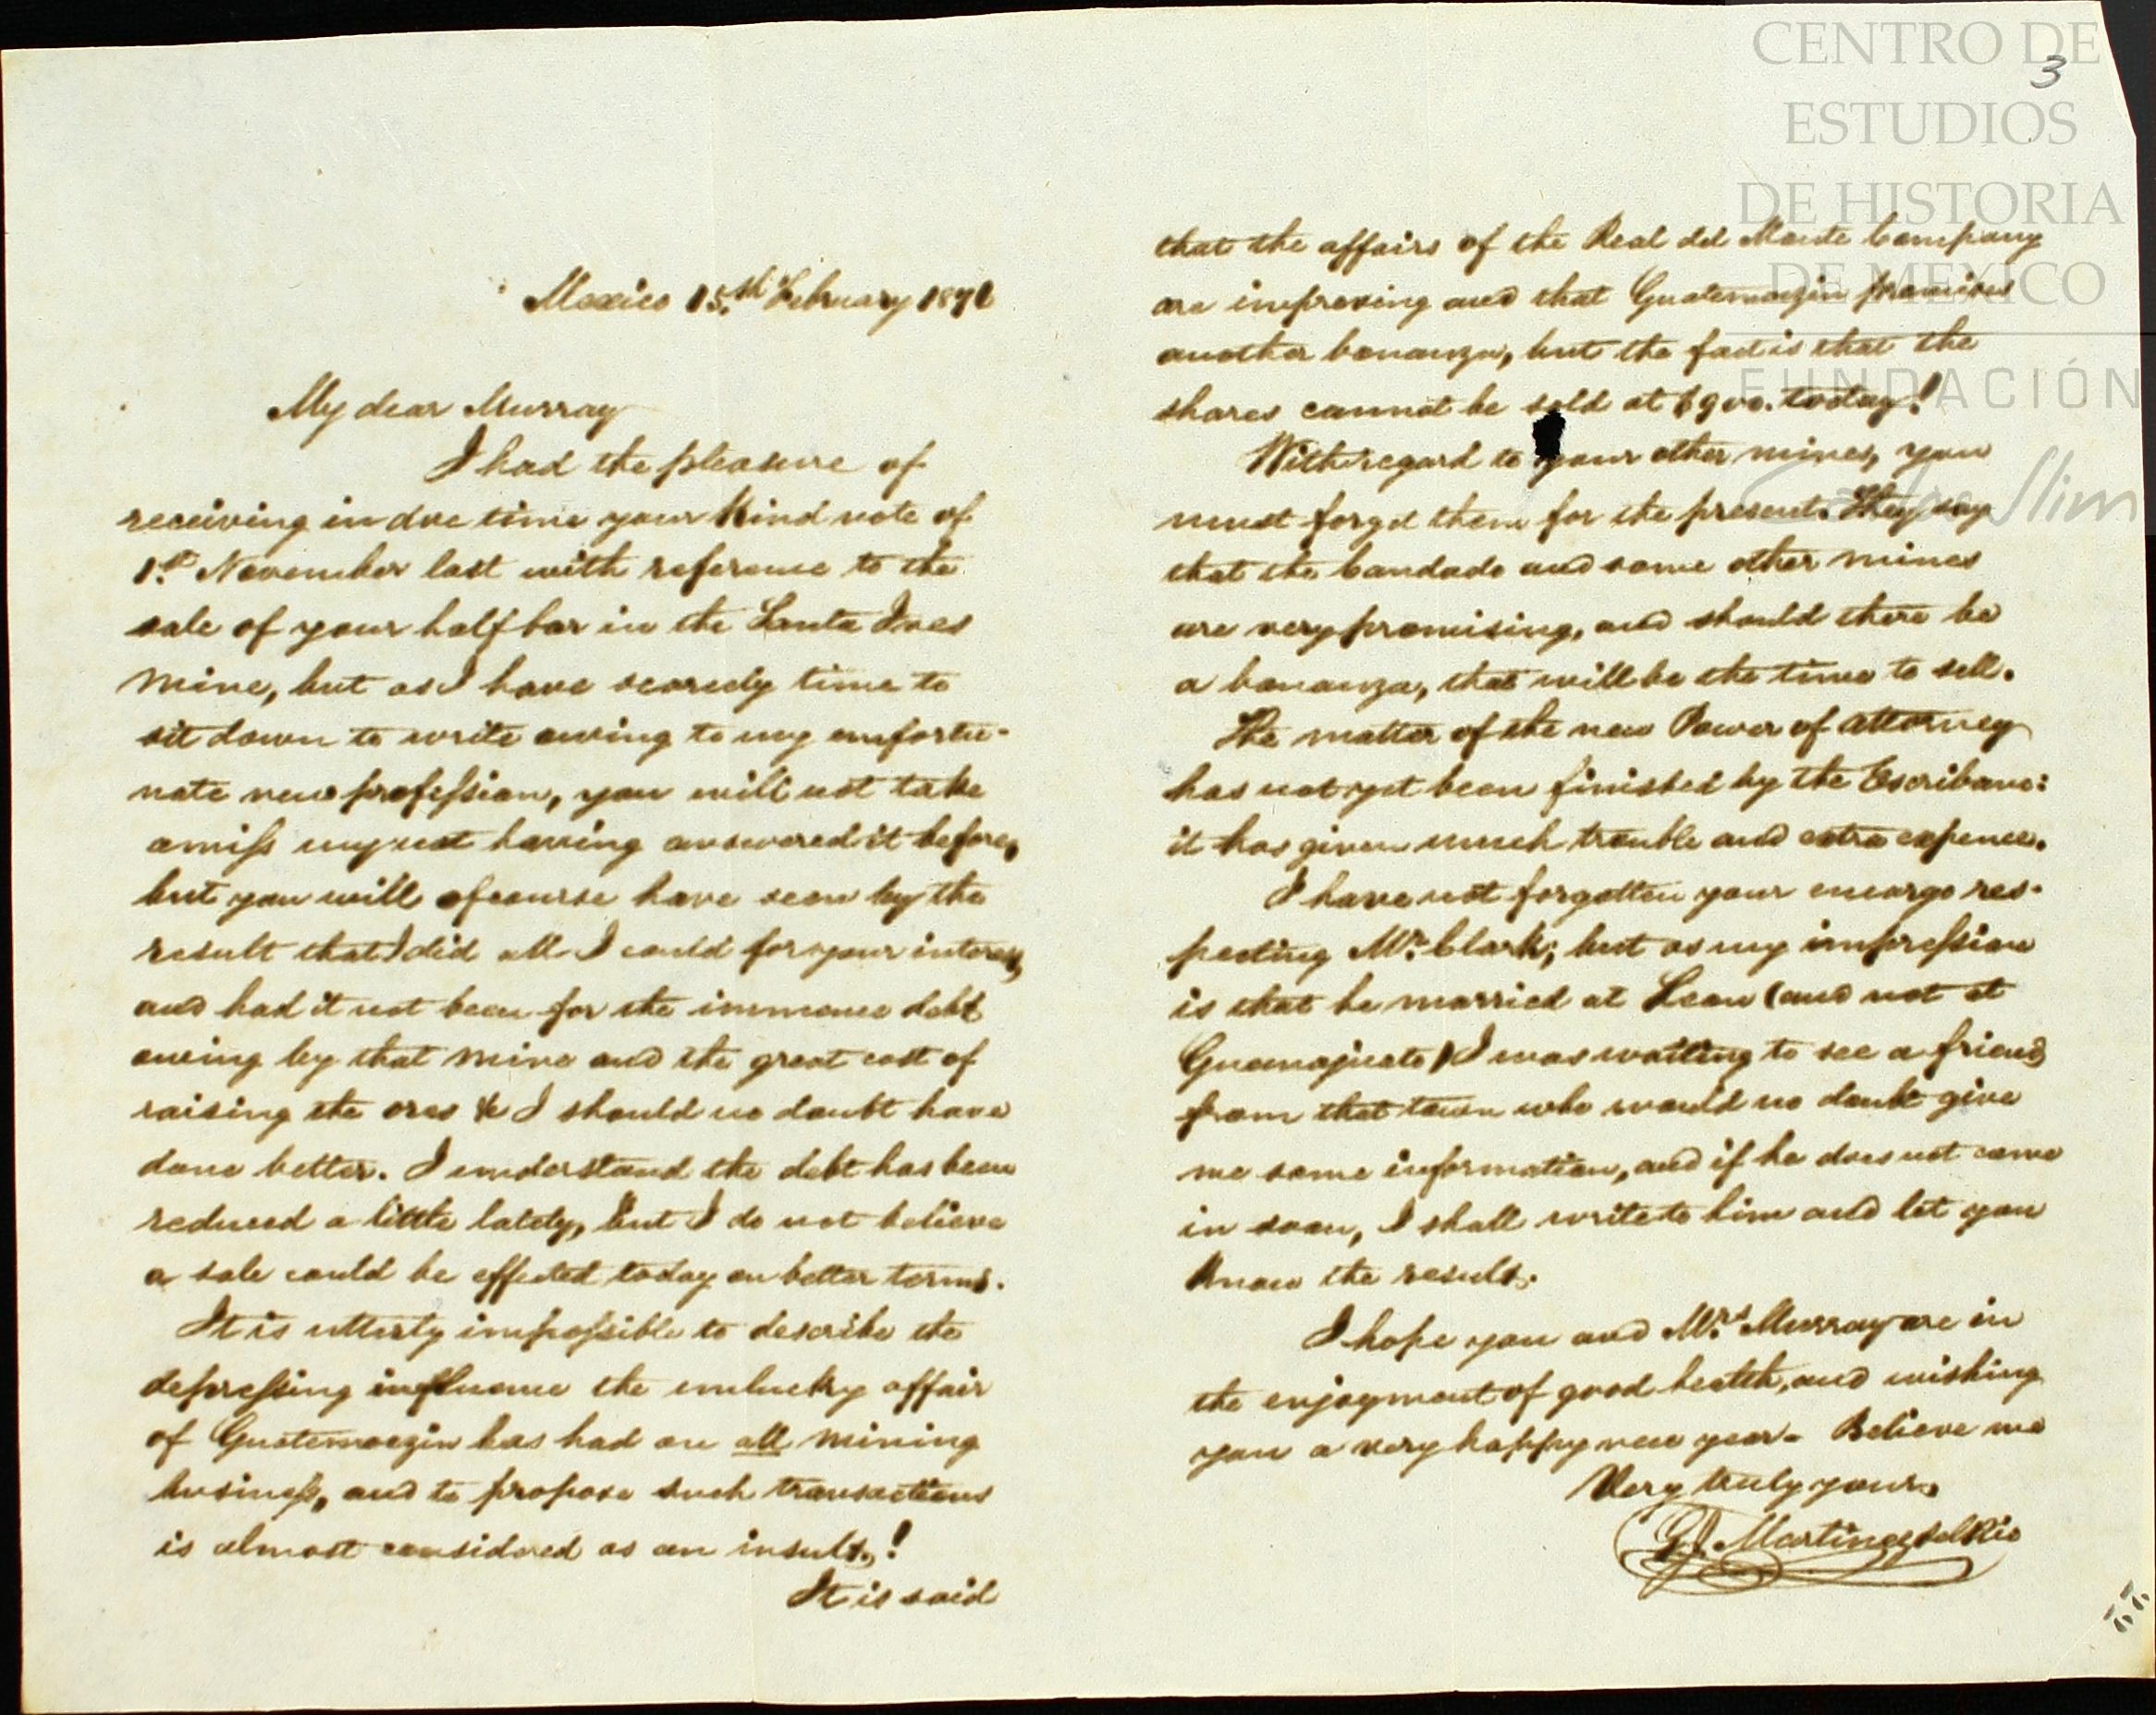 3
Mexico 15.th February 1871
My dear Murray
I had the pleasure of
receiving in due time your kind note of
1.st November last with reference to the
sale of your half bar in the Santa Ines
mine, but as I have scarcely time to
sit down to write owing to my unfortu-
nate new profession, you will not take
amiss my not having answered it before,
but you will of course have seen by the
result that I did all I could for your interest,
and had it not been for the immense debt
owing by that mine and the great cost of
raising the ores &c I should no doubt have
done better. I understand the debt has been
reduced a little lately, but I do not believe
a sale could be effected today on better terms.
It is utterly impossible to describe the
depressing influence the unlucky affair
of Guatemoczin has had on all mining
business, and to propose such transactions
is almost considered as an insult,!
It is said
that the affairs of the Real del Monte Company
are improving and that Guatemoczin promises
another bonanza, but the fact is that the
shares cannot be sold at $900. today!
With regard to your other mines, you
must forget them for the present. They say
that the Candado and some other mines
are very promising, and should there be
a bonanza, that will be the time to sell.
The matter of the new Power of attorney
has not yet been finished by the Escribano:
it has given much trouble and extra expence.
I have not forgotten your encargo res-
pecting Mr. Clark; but as my impression
is that he married at Leon (and not at
Guanajuato) I was waiting to see a friend
from that town who would no doubt give
me some information, and if he does not come
in soon, I shall write to him and let you
know the result.
I hope you and Mrs. Murray are in
the enjoyment of good health, and wishing
you a very happy new year. Believe me
Very truly yours
G. J. Martinez del Rio
CENTRO DE
ESTUDIOS
DE HISTORIA
DE MEXICO
FUNDACIÓN
Carlos Slim